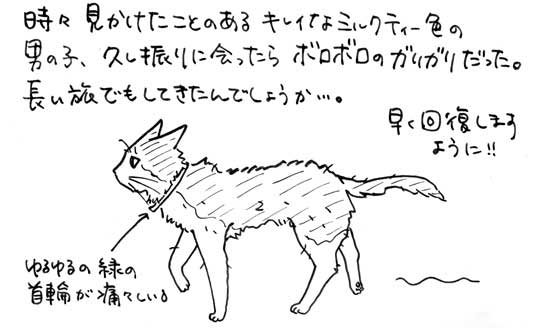 時々見かけたことのあるキレイなミルクティー色の
男の子、久し振りに会ったらボロボロのガリガリだった。
長い旅でもしてきたんでしょうか…。
早く回復します
ように!!
ゆるゆるの緑の
首輪が痛々しい